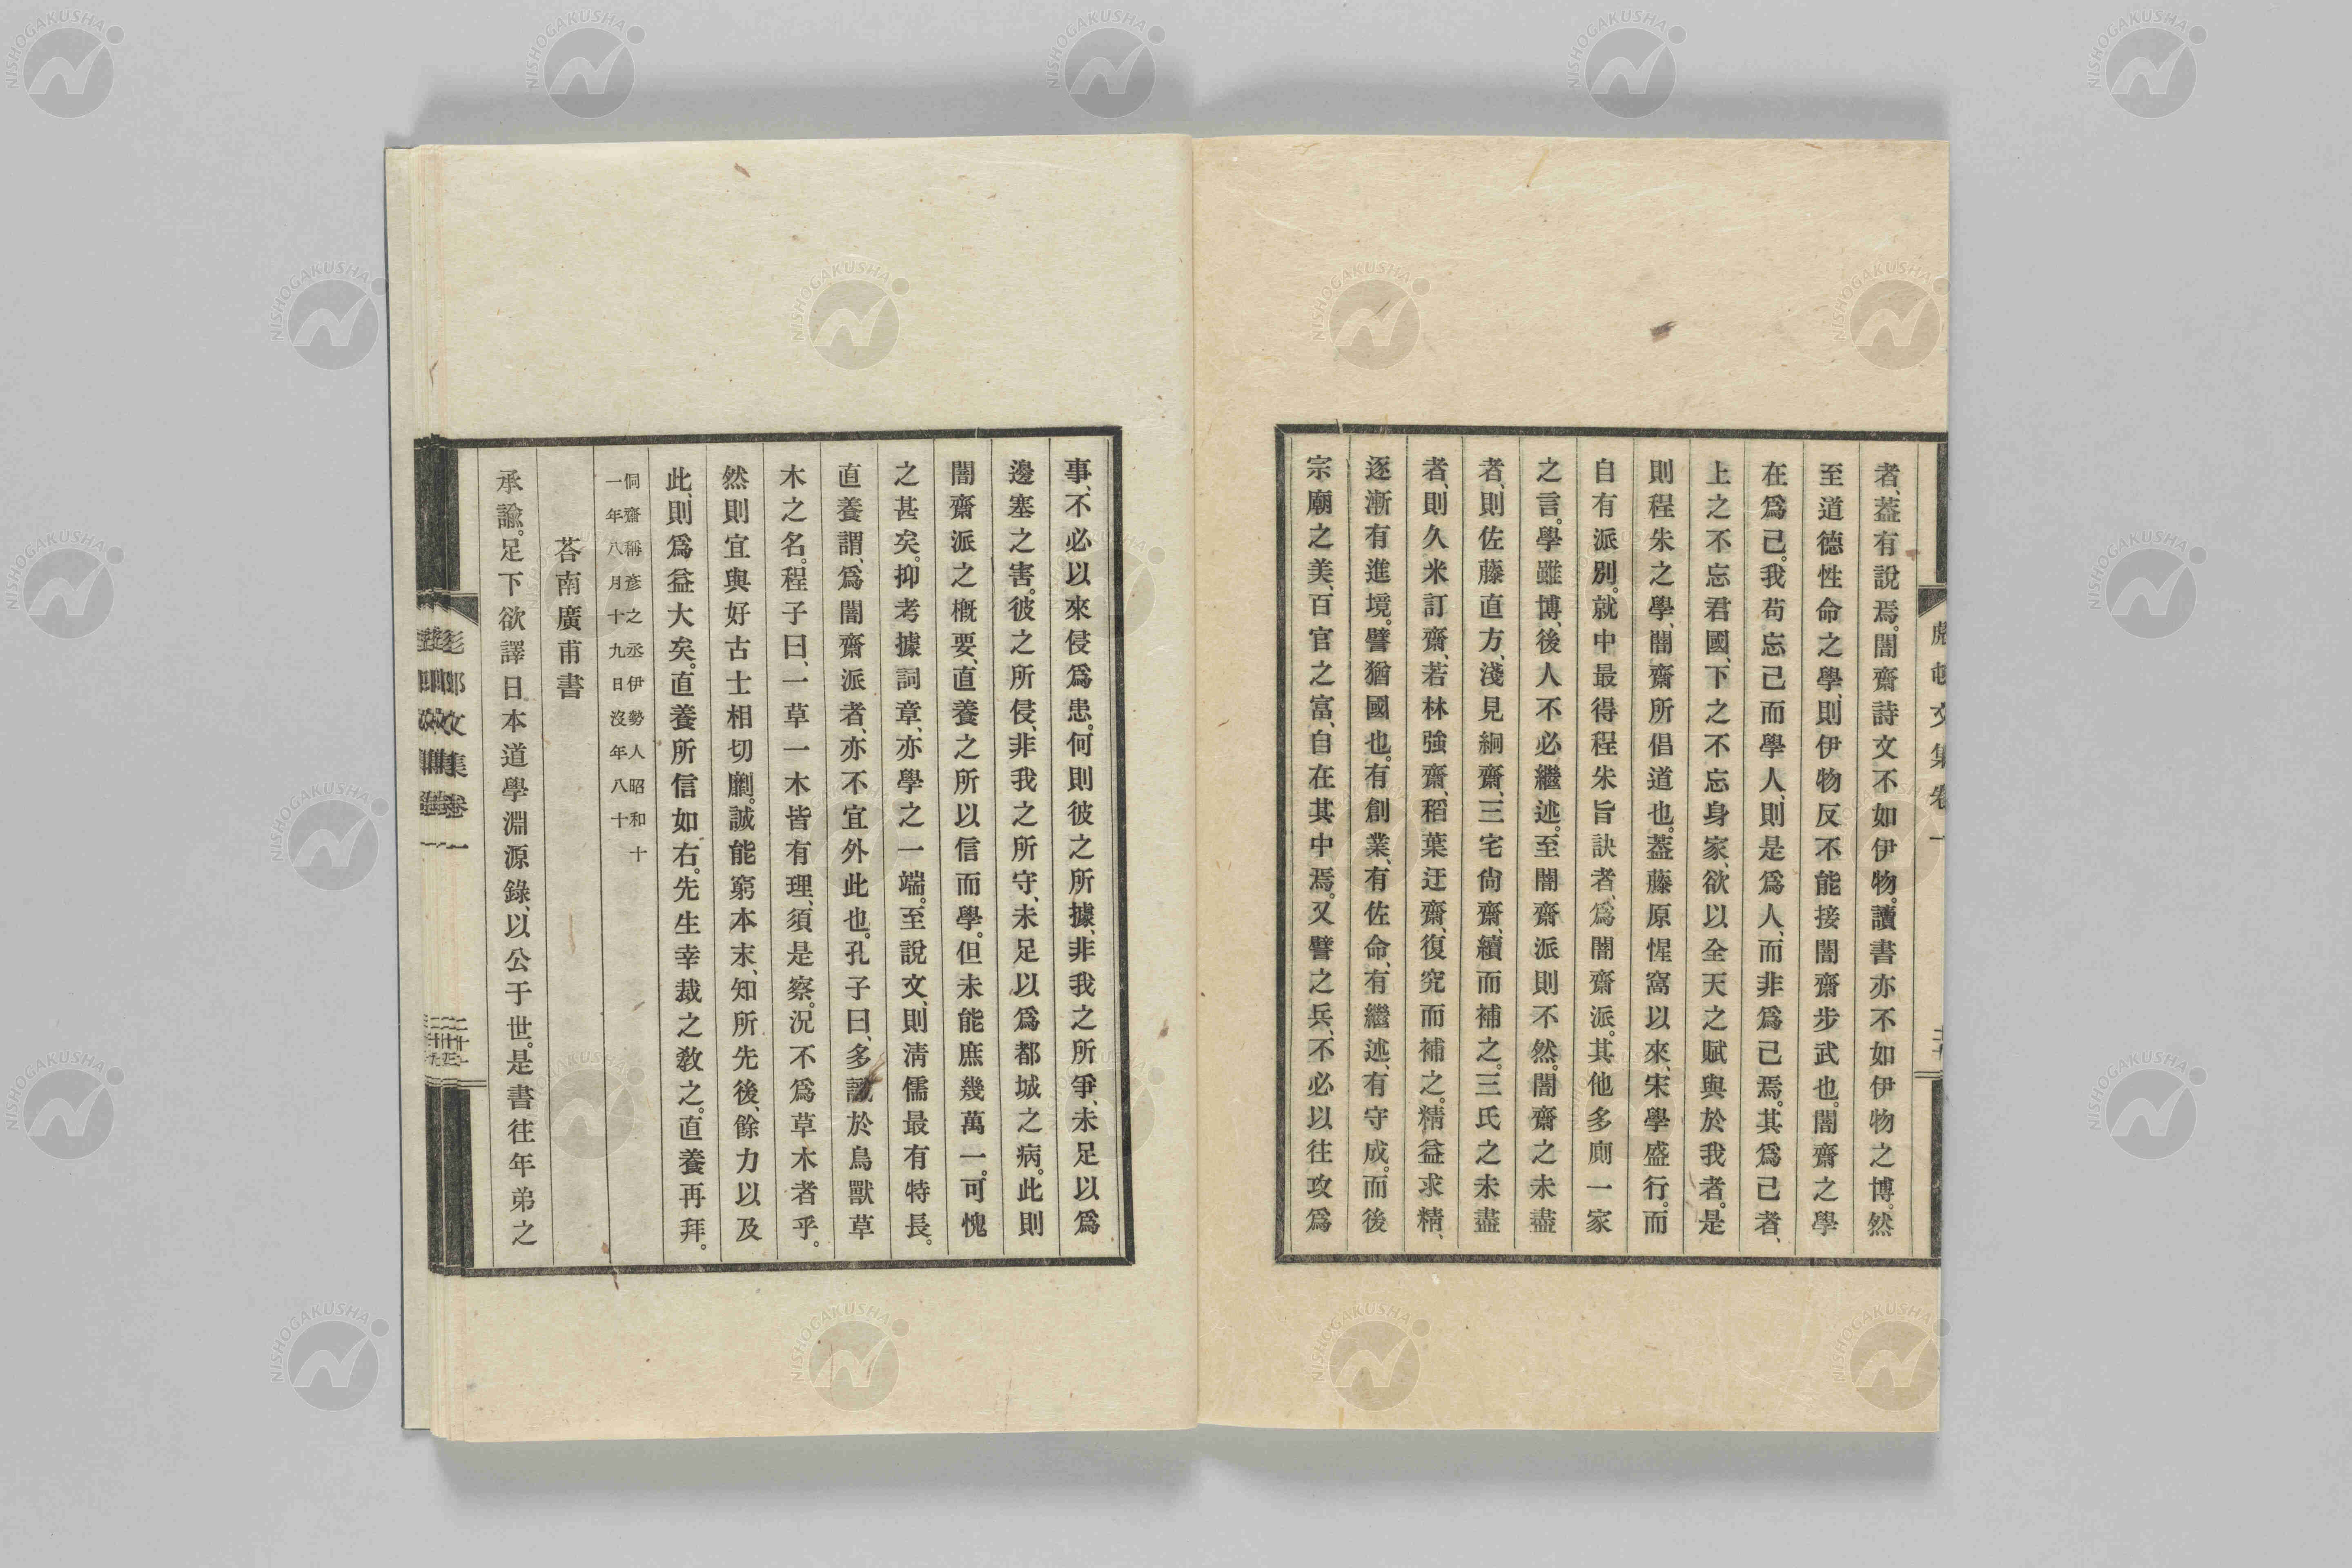 者、葢有說焉。闇齋詩文不如伊物。讀書亦不如伊物之博。然
至道德性命之學、則伊物反不能接闇齋步武也。闇齋之學
在爲己。我苟忘己而學人、則是爲人、而非爲己焉。其爲己者、
上之不忘君國、下之不忘身家、欲以全天之賦與於我者。是
則程朱之學、闇齋所倡道也。葢藤原惺窩以來、宋學盛行。而
自有派別。就中最得程朱旨訣者、爲闇齋派。其他多則一家
之言。學雖博、後人不必繼述。至闇齋派則不然。闇齋之未盡
者、則佐藤直方、淺見絅齋、三宅尙齋、續而補之。三氏之未盡
者、則久米訂齋、若林強齋、稻葉迂齋、復究而補之。精益求精、
逐漸有進境。譬猶國也。有創業、有佐命、有繼述、有守成。而後
宗廟之美、百官之富、自在其中焉。又譬之兵、不必以往攻爲
事、不必以來侵爲患。何則彼之所據、非我之所爭、未足以爲
邊塞之害。彼之所侵、非我之所守、未足以爲都城之病。此則
闇齋派之槪要、直養之所以信而學。但未能庶幾萬一。可愧
之甚矣。抑考據詞章、亦學之一端。至說文、則淸儒最有特長。
直養謂、爲闇齋派者、亦不宜外此也。孔子曰、多識於鳥獸草
木之名。程子曰、一草一木皆有理、須是察。況不爲草木者乎。
然則宜與好古士相切劘。誠能窮本末、知所先後、餘力以及
此、則爲益大矣。直養所信如右。先生幸裁之敎之。直養再拜。
侗齋稱彥之丞伊勢人昭和十
一年八月十九日沒年八十
荅南廣甫書
承諭。足下欲譯日本道學淵源錄、以公于世。是書往年弟之
文集卷一